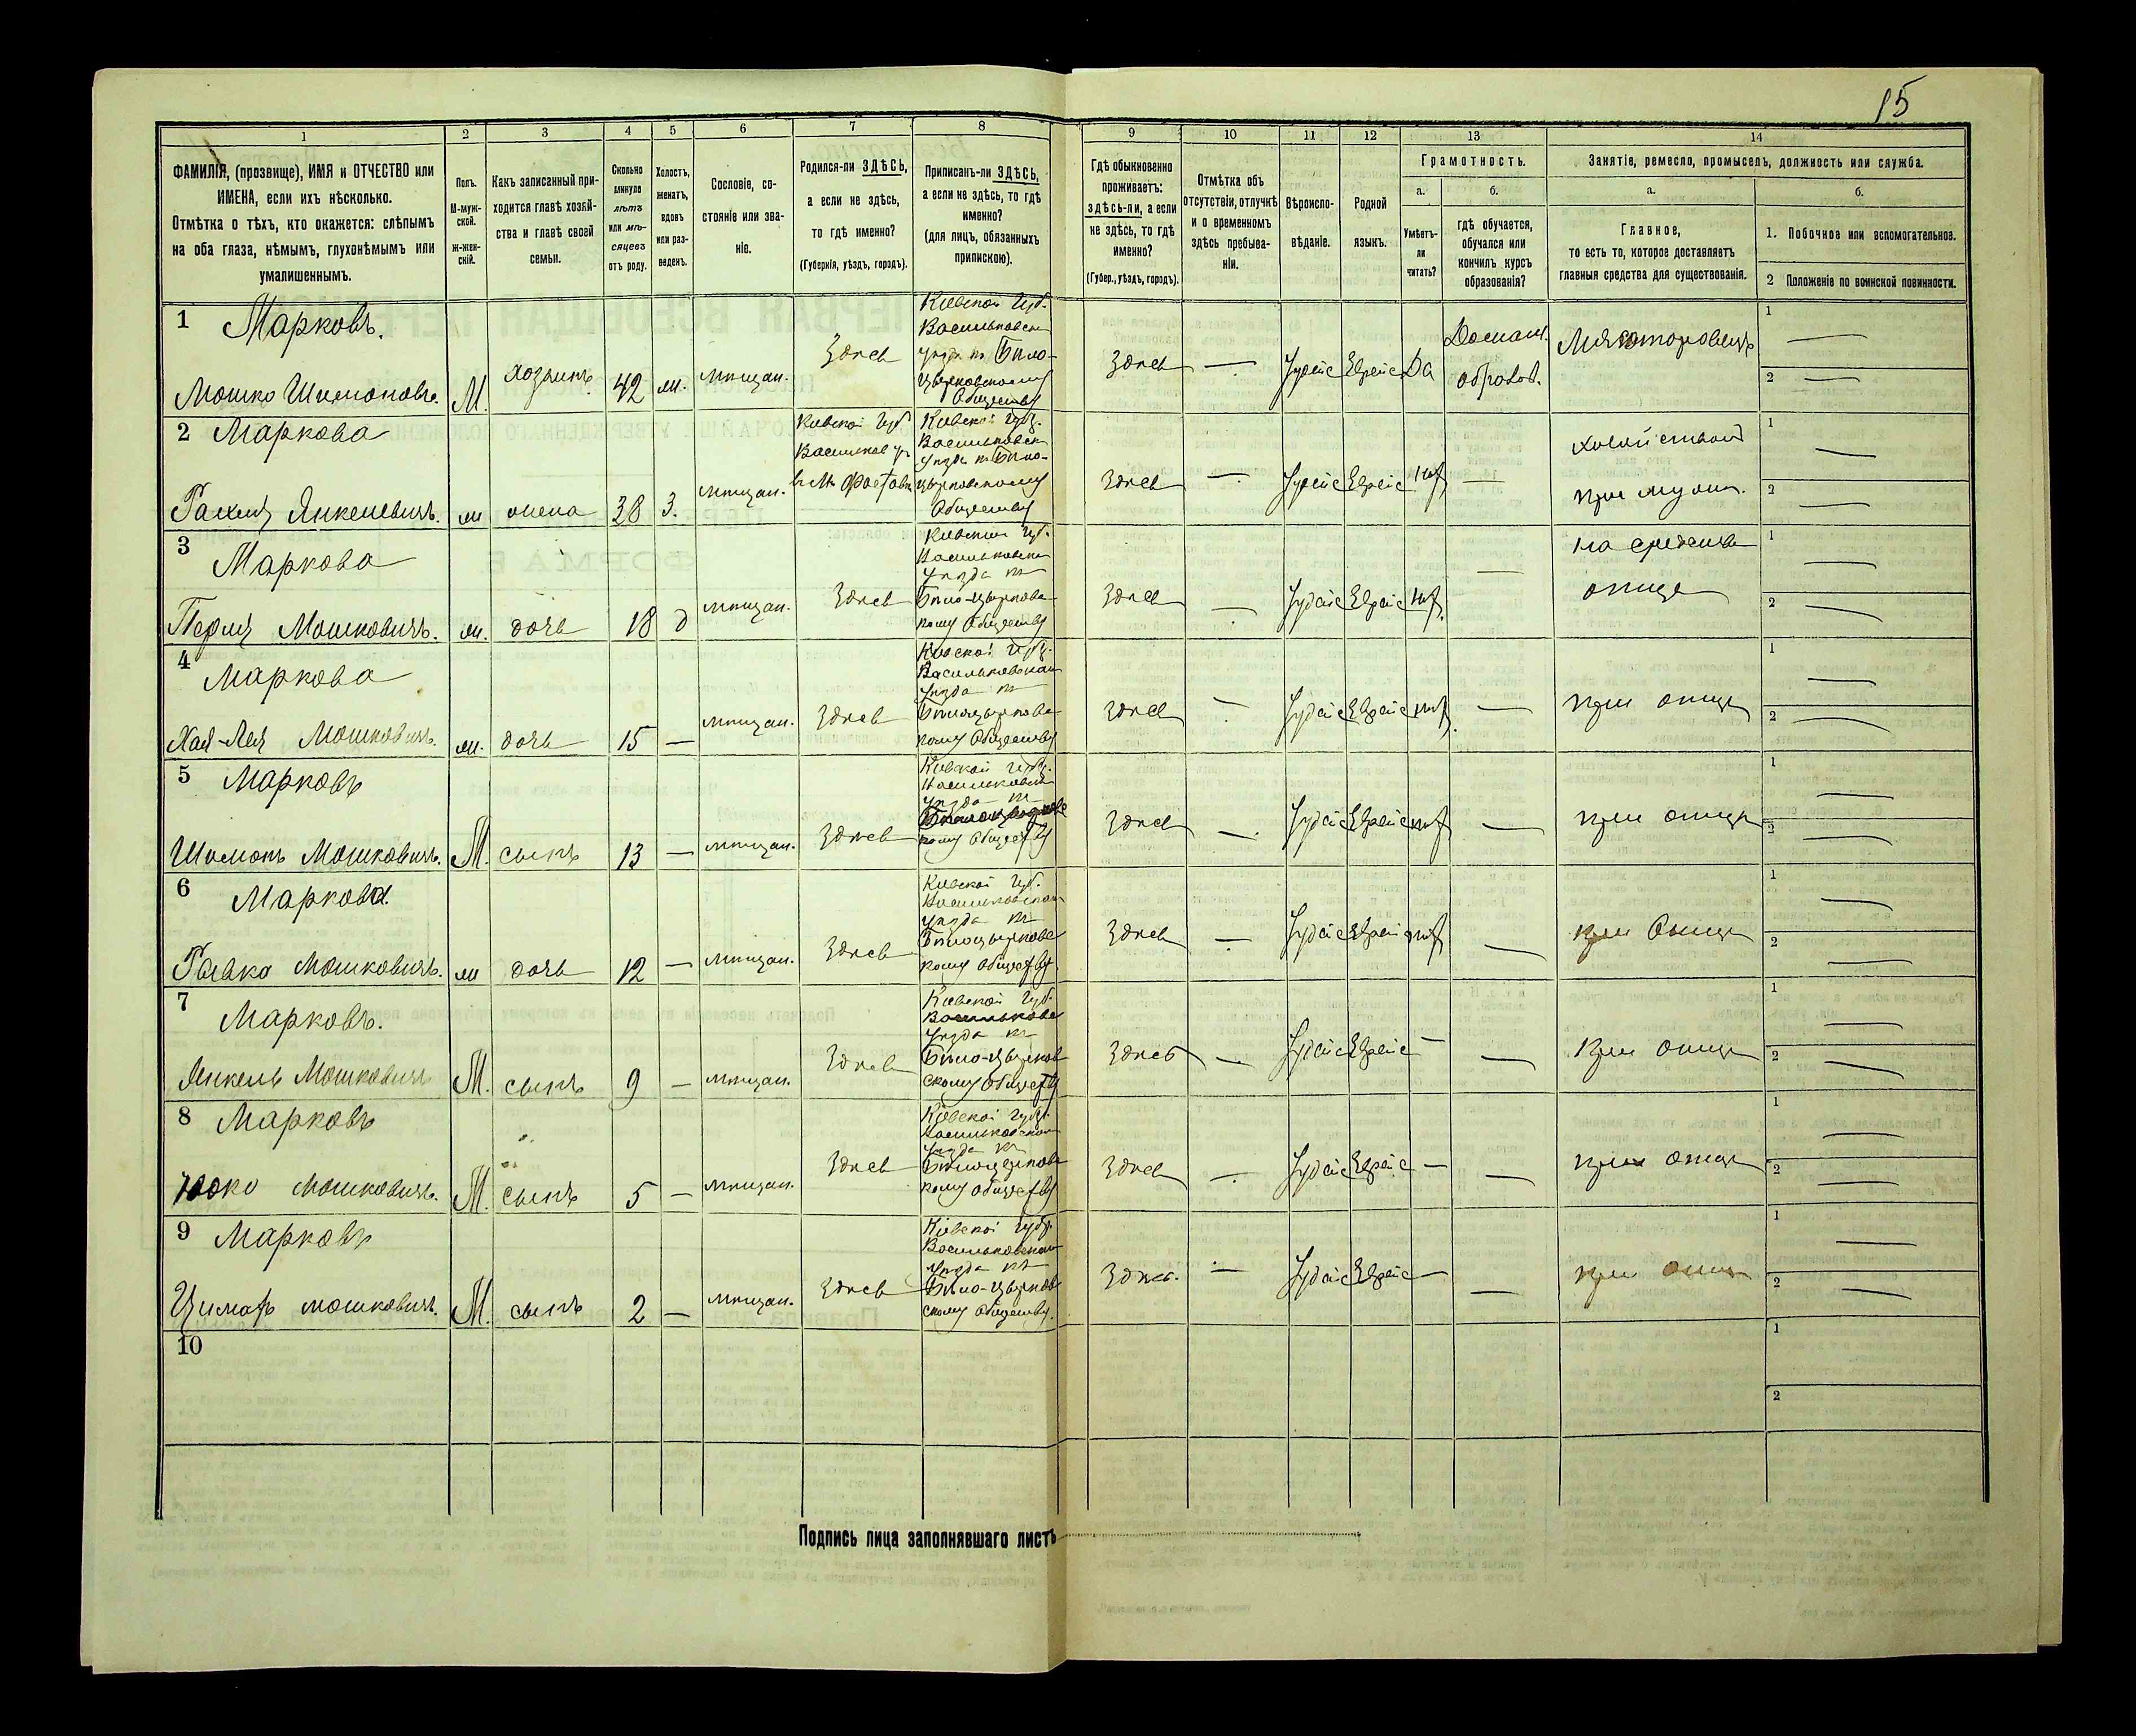 15
1 2 3 4 5 6 7 8 9 10 11 12 13 14
ФАМИЛІЯ, (прозвище), ИМЯ и ОТЧЕСТВО или
ИМЕНА, если ихъ нѣсколько.
Отмѣтка о тѣхъ, кто окажется: слѣпымъ
на оба глаза, нѣмымъ, глухонѣмымъ или
умалишеннымъ.
Полъ.
М-муж-
ской.
ж-жен-
скій.
Какъ записанный при-
ходится главѣ хозяй-
ства и главѣ своей
семьи.
Сколько
минуло
лѣтъ
или мѣ-
сяцевъ
отъ роду.
Холостъ,
женатъ,
вдовъ
или раз-
веденъ.
Сословіе, со-
стояніе или зва-
ніе.
Родился-ли ЗДѢСЬ,
а если не здѣсь,
то гдѣ именно?
(Губернія, уѣздъ, городъ).
Приписанъ-ли ЗДѢСЬ,
а если не здѣсь, то гдѣ
именно?
(для лицъ, обязанныхъ
припискою).
Гдѣ обыкновенно
проживаетъ:
здѣсь-ли, а если
не здѣсь, то гдѣ
именно?
(Губер., уѣздъ, городъ).
Отмѣтка объ
отсутствіи, отлучкѣ
и о временномъ
здѣсь пребыва-
ніи.
Вѣроиспо-
вѣданіе.
Родной
языкъ.
Грамотность.
а.
Умѣетъ-
ли
читать?
б.
гдѣ обучается,
обучался или
кончилъ курсъ
образованія?
Занятіе, ремесло, промыселъ, должность или служба.
а.
Главное,
то есть то, которое доставляетъ
главныя средства для существованія.
б.
1. Побочное или вспомогательное.
2 Положеніе по воинской повинности.
1 Марковъ.
Мошко Шимоновъ. М. хозяинъ 42 ж. мѣщан. Здѣсь
Кіевской Губ.
Васильковск
уѣзда къ Бѣло-
церковскому
Обществу
Здѣсь — Іудейс Еврейс Да
Домаш.
образов.
Мясоторговецъ
1 —
2 —
2 Маркова
Рахиля Янкелевичъ. ж жена 38 З. мѣщан.
Кіевской Губ
Васильков у.
в м. Фастовъ
Кіевской Губ.
Васильковск
уѣзда къ Бѣло-
церковскому
Обществу
Здѣсь — Іудейс Еврейс Нѣт —
хозяйством
при муж.
1 —
2 —
3 Маркова
Перля Мошковичъ. ж. дочь 18 д мѣщан. Здѣсь
Кіевской Губ.
Васильковск
уѣзда къ
Бѣло-церковс
кому Обществу
Здѣсь — Іудейс Еврейс Нѣт —
на средства
отца
1 —
2 —
4 Маркова
Хая-Лея Мошковичъ. ж. дочь 15 — мѣщан. Здѣсь
Кіевской Губ.
Васильковскаго
уѣзда къ
Бѣлоцерковс
кому Обществу
Здѣсь — Іудейс Еврейс Нѣт —
при отцѣ
1 —
2 —
5 Марковъ
Шимонъ Мошковичъ. М. сынъ 13 — мѣщан. Здѣсь
Кіевской Губ.
Васильковск
уѣзда къ
Бѣлоцерковс
кому Обществу
Здѣсь — Іудейс Еврейс Нѣт —
при отцѣ
1 —
2 —
6 Маркова.
Рывка Мошковичъ. ж дочь 12 — мѣщан. Здѣсь
Кіевской Губ.
Васильковскаго
уѣзда къ
Бѣлоцерковс
кому Обществу
Здѣсь — Іудейс Еврейс Нѣт —
при Отцѣ
1 —
2 —
7 Марковъ.
Янкель Мошковичъ М. сынъ 9 — мѣщан. Здѣсь
Кіевской Губ.
Васильковс
уѣзда къ
Бѣло-церков
скому Обществу
Здѣсь — Іудейс Еврейс — —
При отцѣ
1 —
2 —
8 Марковъ
Мошковичъ. М. сынъ 5 — мѣщан. Здѣсь
Кіевской Губ.
Васильковскаго
уѣзда къ
Бѣлоцерковс
кому Обществу
Здѣсь — Іудейс Еврейс — —
при отцѣ
1 —
2 —
9 Марковъ
мошковичъ. М. сынъ 2 — мѣщан. Здѣсь
Кіевской Губ.
Васильковскаго
уѣзда къ
Бѣло-церков
скому Обществу.
Здѣсь. — Іудейс Еврейс — —
при отцѣ
1 —
2 —
10
1
2
Подпись лица заполнявшаго листъ